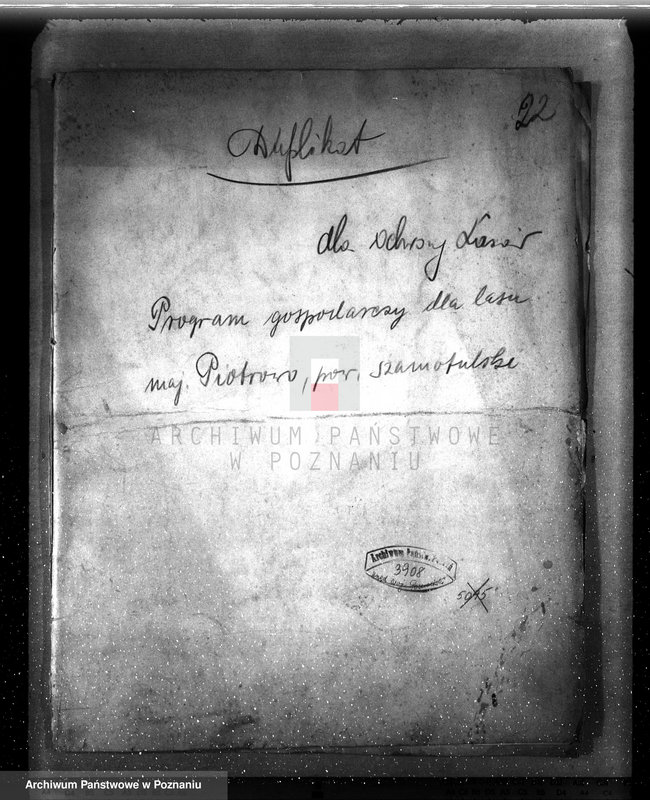 22
Duplikat
dla Ochrony Lasów
Program gospodarczy dla lasu
maj. Piotrowo, pow. szamotulski
ARCHIWUM PAŃSTWOWE
W POZNANIU
Archiwum Państw.
3908
5045
Archiwum Państwowe w Poznaniu